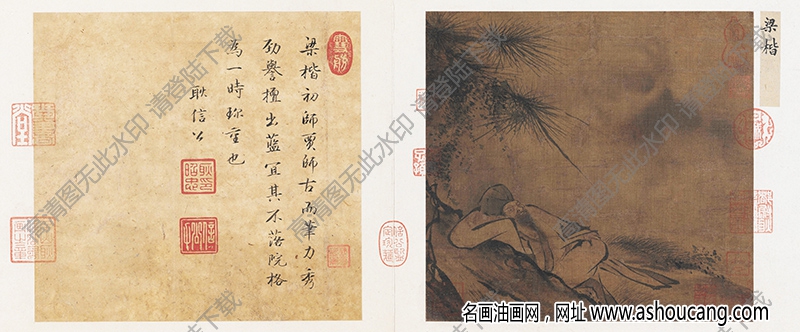 梁楷
梁楷初師賈師古而筆力秀
勁譽擅出藍宜其不落院格
為一時珍重也
耿信公
高清图无此水印 请登陆下载
名画油画网，网址 www.ashoucang.com